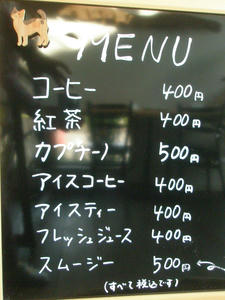 MENU
コーヒー 400円
紅茶 400円
カプチーノ 500円
アイスコーヒー 400円
アイスティー 400円
フレッシュジュース 400円
スムージー 500円
(すべて税込です)